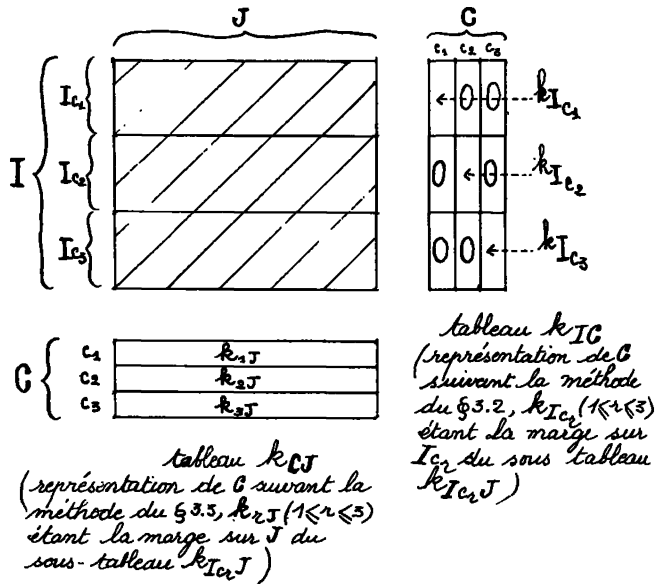 J
C
c1 c2 c3
I
Ic1
Ic2
Ic3
0 0 kIc1
0 0 kIc2
0 0 kIc3
C
c1 k1J
c2 k2J
c3 k3J
tableau kCJ
(représentation de C suivant la
méthode du §3.3, krJ (1⩽r⩽3)
étant la marge sur J du
sous-tableau kIcrJ)
tableau kIC
(représentation de C
suivant la méthode
du §3.2, kIcr (1⩽r⩽3)
étant la marge sur
Icr du sous tableau
kIcrJ)